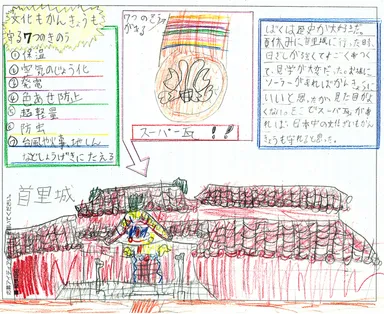 文化もかんきょうも
守る7つのきのう
①保温
②空気のじょう化
③発電
④色あせ防止
⑤超軽量
⑥防虫
⑦台風や火事、地しん
などしょうげきにたえる
7つのきのう
がある
スーパー瓦!!
ぼくは歴史が大好きだ。
夏休みに首里城に行った時、
日ざしが強くてすごく暑くて
見学が大変だった。お城に
ソーラーがあればかんきょうに
いいと思ったが、見た目がよ
くない。そこでスーパー瓦が
あれば、日本中の文化ざいもかん
きょうも守れると思った。
首里城